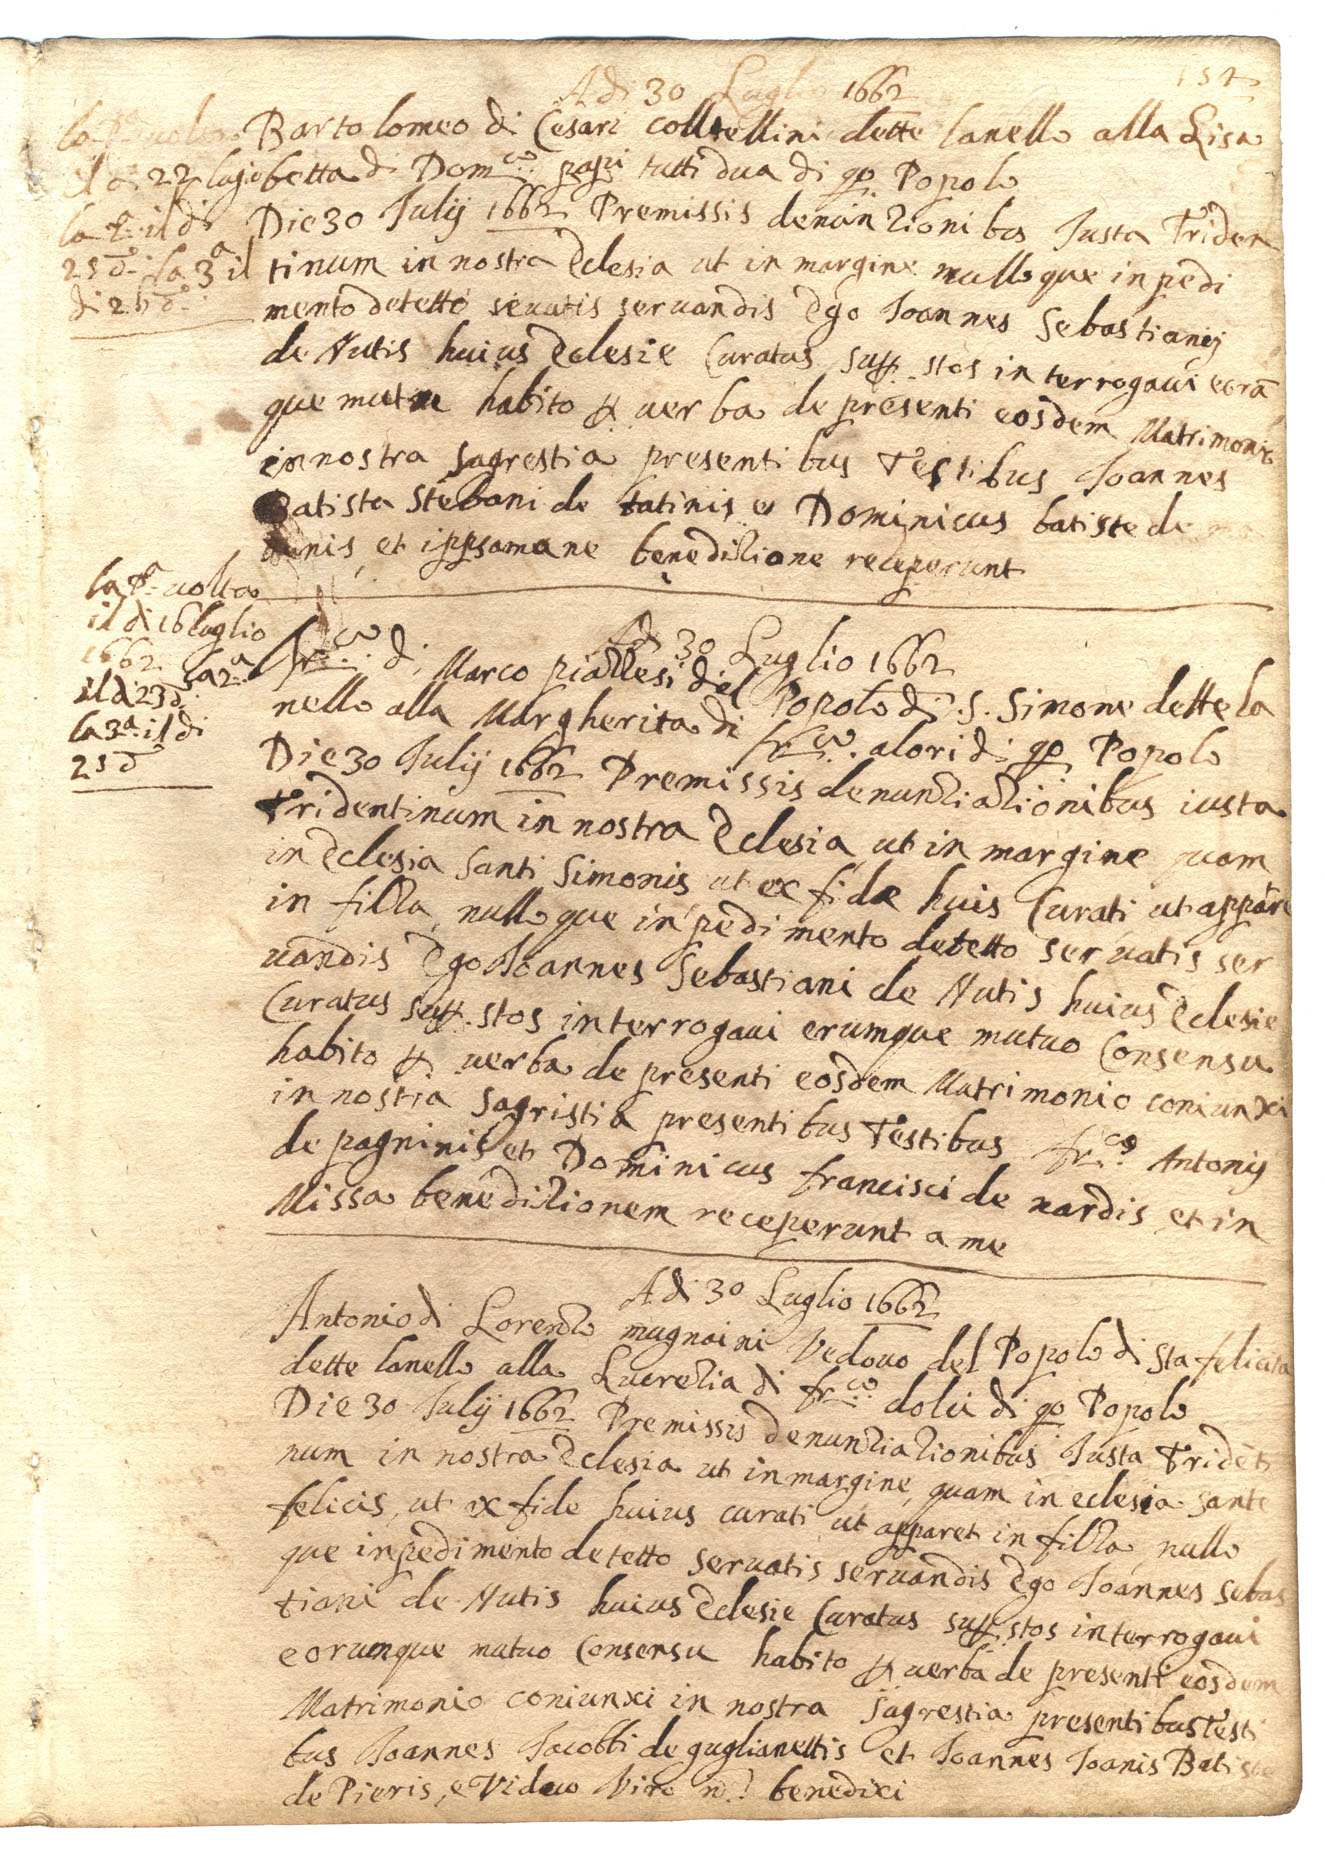 154
Adi 30 Luglio 1662
la pa uolta
il di 22 luglio
la 2a il di
25 do la 3a il
di 26 do
Bartolomeo di Cesari colltellini dette lanello alla Lisa
betta di Domco papi tutti dua di qo Popolo
Die 30 Julij 1662 Premissis denunzionibus Justa Triden
tinum in nostra Eclesia ut in margine nulloque inpedi
mento detetto seruatis seruandis Ego Joannes Sebastianij
de Nutis huius Eclesie Curatus supp.stos interrogaui eorū
que mutue habito p uerba de presenti eosdem Matrimonio
in nostra sagrestia presentibus Testibus Joannes
Batista Stefani de tatinis e Dominicus batiste de
et ippsamane benedizione receperunt
la pa uolta
il di 16 luglio
1662 la 2a
il di 23 do
la 3a il di
25 do
Adi 30 Luglio 1662
Frco di Marco piallesi del Popolo di S. Simone dette la
nello alla Margherita di frco alori di qo Popolo
Die 30 Julij 1662 Premissis denunziationibus iusta
Tridentinum in nostra Eclesia ut in margine quam
in Eclesia Santi Simonis ut ex fide huis Curati ut appare
in filza, nulloque inpedimento detetto seruatis ser
uandis Ego Joannes Sebastiani de Nutis huius Eclesie
Curatus supp.stos interrogaui erumque mutuo Consensu
habito p uerba de presenti eosdem Matrimonio coniunxi
in nostra sagristia presentibus Testibus frco Antonij
de pagninis et Dominicus francisci de nardis et in
Missa benedizionem receperunt a me
Adi 30 Luglio 1662
Antonio di Lorenzo mugnaini Vedouo del Popolo di Sta felicita
dette lanello alla Lucrezia di frco dolci di qo Popolo
Die 30 Julij 1662 Premissis denunziazionibus Justa Tridēti
num in nostra Eclesia ut in margine, quam in eclesia Sante
felicis, ut ex fide huius curati ut apparet in filza nullo
que inpedimento detetto seruatis seruandis Ego Joannes Sebas
tiani de Nutis huius Eclesie Curatus supp.stos interrogaui
eorumque mutuo Consensu habito p uerba de presenti eosdem
Matrimonio coniunxi in nostra sagrestia presentibus Testi
bus Joannes Jacobbi de guglianettis et Joannes Joanis Batiste
de Pieris, e Viduo Viro n. benedixi